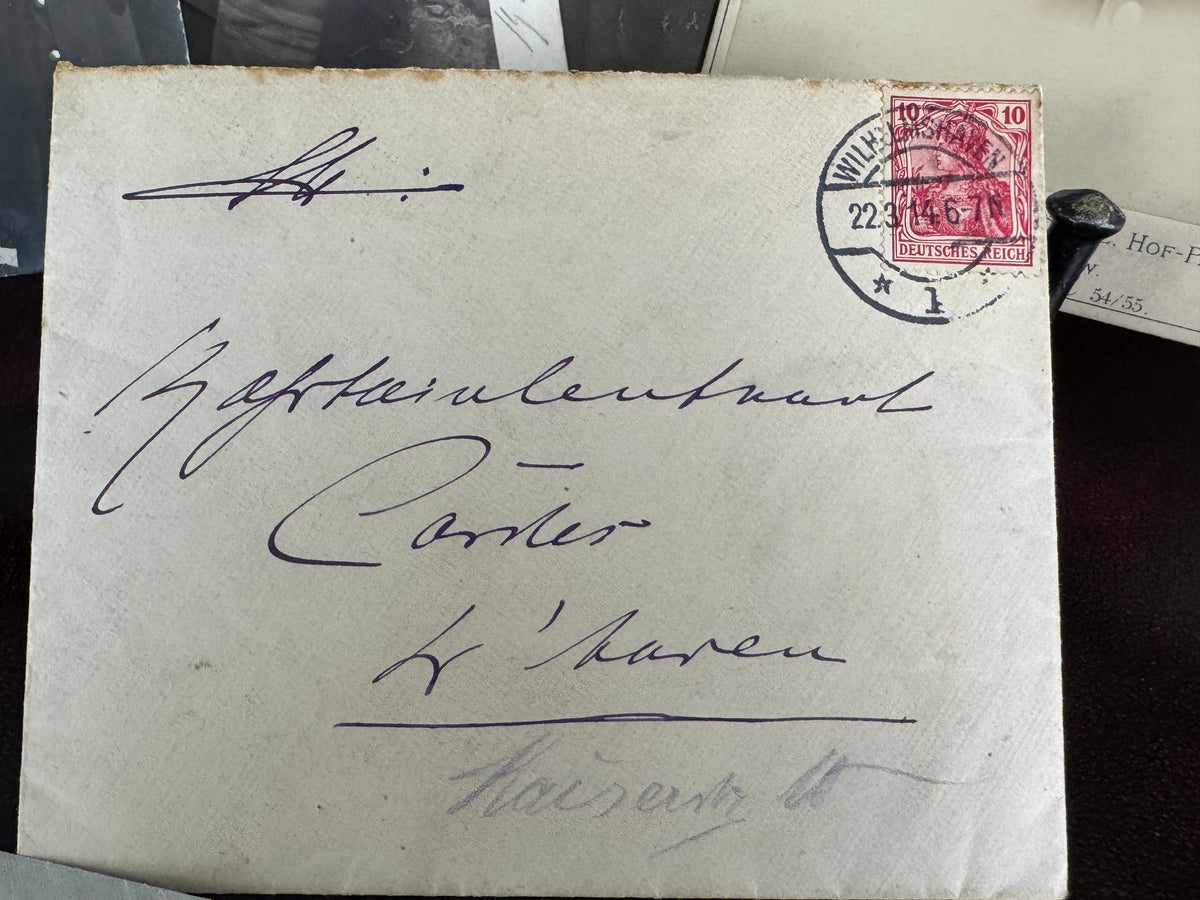 10 10
WILHELMSHAVEN
22.3.14.6-7N
DEUTSCHES REICH
* 1
Kapitainleutnant
Cordes
W'haven
Kaiserstr
HOF-P
54/55.